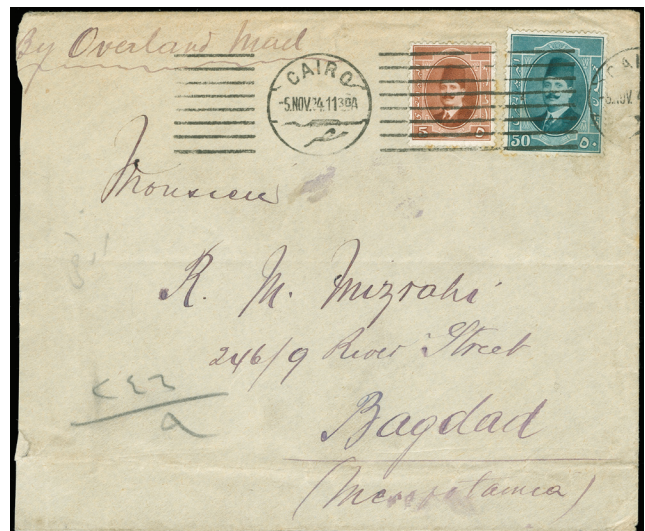 By Overland Mail
CAIRO
-5.NOV.24.1130A
5 ٥
50 ٥٠
Monsieur
R. M. Mizrahi
246/9 River Street
Bagdad
(Mesopotamia)